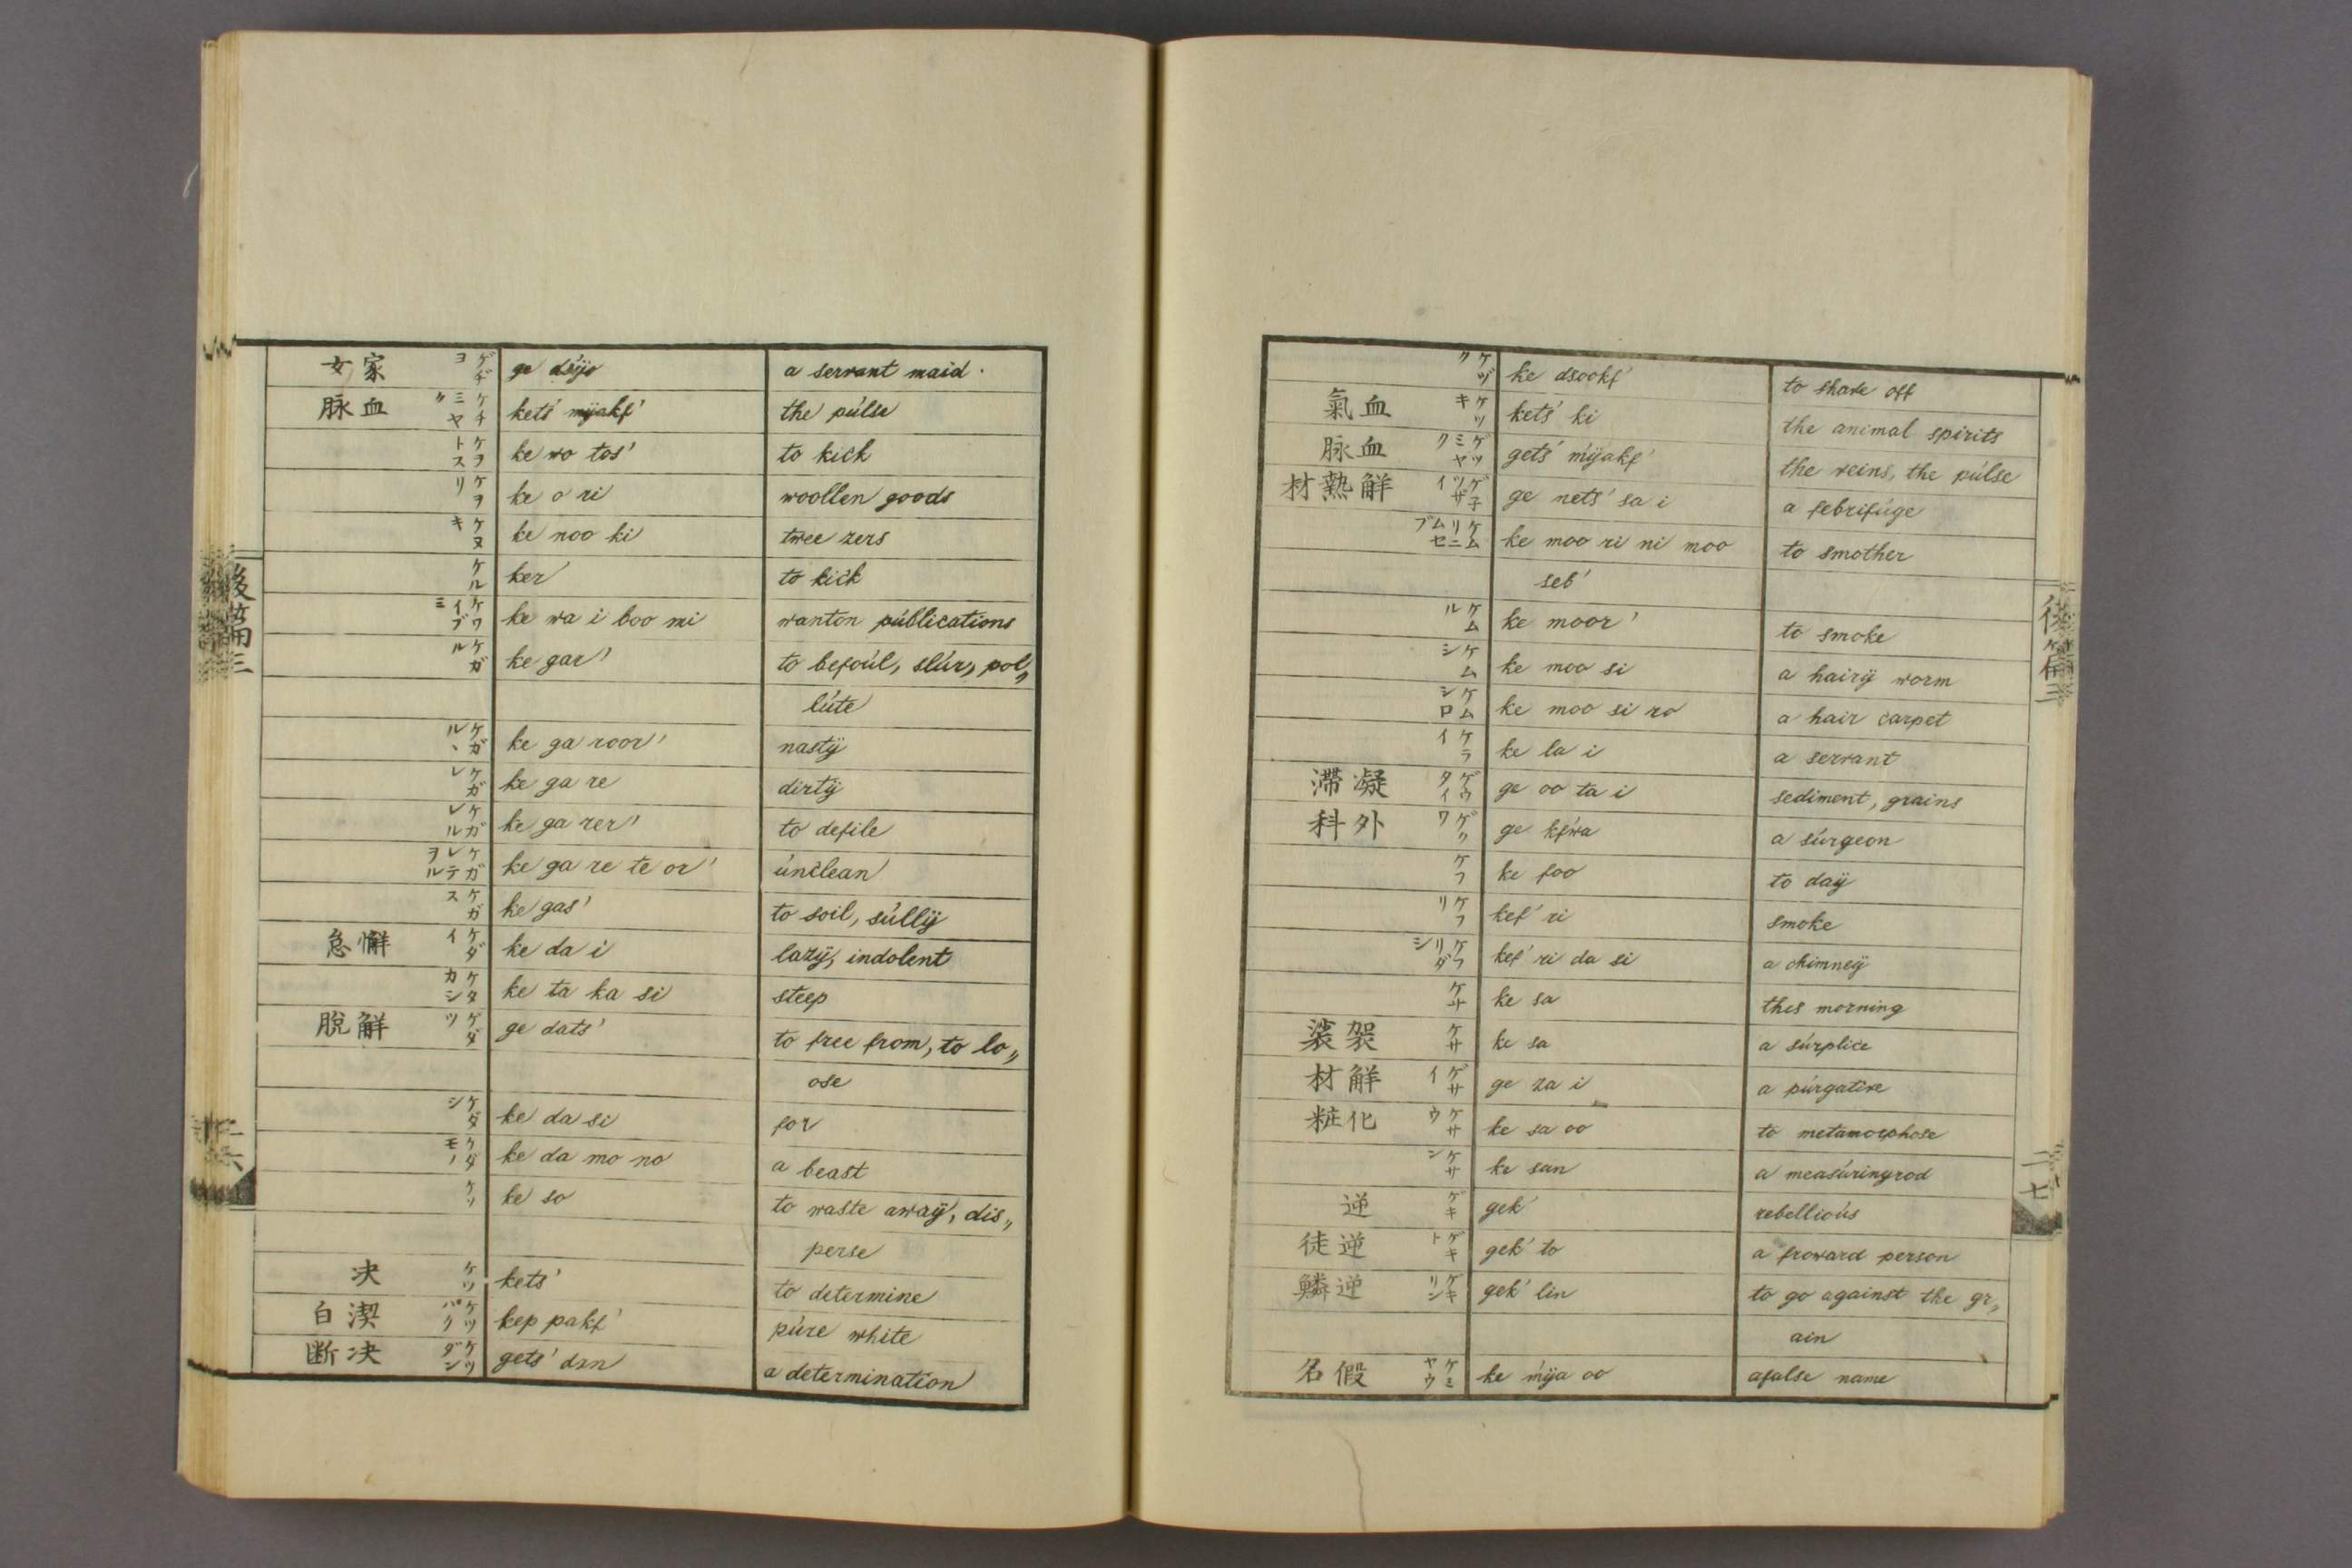 女家 ゲヂヨ ge dsÿo a servant maid.
脉血 ケチミヤク kets' mÿakf' the púlse
ケヲトス ke wo tos' to kick
ケヲリ ke o ri woollen goods
ケヌキ ke noo ki twee zers
ケル ker' to kick
ケワイブミ ke wa i boo mi wanton públications
ケガル ke gar' to befoúl, slúr, pol„
lúte
ケガヽル ke ga roor' nastÿ
ケガレ ke ga re dirtÿ
ケガレル ke ga rer' to defile
ケガレテヲル ke ga re te or' únclean
ケガス ke gas' to soil, súllÿ
怠懈 ケダイ ke da i lazÿ, indolent
ケタカシ ke ta ka si steep
脱解 ゲダツ ge dats' to free from, to lo„
ose
ケダシ ke da si for
ケダモノ ke da mo no a beast
ケソ ke so to waste awaÿ, dis„
perse
决 ケツ kets' to determine
白潔 ケツパク kep pakf' púre white
断决 ケツダン gets' dan a determination
後篇三
二十六
ケヅク ke dsookf' to shave off
氣血 ケツキ kets' ki the animal spirits
脉血 ゲツミヤク gets' mÿakf' the veins, the púlse
材熱解 ゲ子ツザイ ge nets' sa i a febrifúge
ケムリニムセブ ke moo ri ni moo to smother
seb'
ケムル ke moor' to smoke
ケムシ ke moo si a hairÿ worm
ケムシロ ke moo si ro a hair carpet
ケライ ke la i a servant
滯凝 ゲウタイ ge oo ta i sediment, grains
科外 ゲクワ ge kfwa a súrgeon
ケフ ke foo to daÿ
ケフリ kef' ri smoke
ケフリダシ kef' ri da si a chimneÿ
ケサ ke sa this morning
裟袈 ケサ ke sa a súrplice
材解 ゲサイ ge za i a púrgative
粧化 ケサウ ke sa oo to metamorphose
ケサン ke san a measúringrod
逆 ゲキ gek' rebellioús
徒逆 ゲキト gek' to a froward person
鱗逆 ゲキリン gek' lin to go against the gr„
ain
名假 ケミヤウ ke mÿa oo afalse name
後篇三
二十七